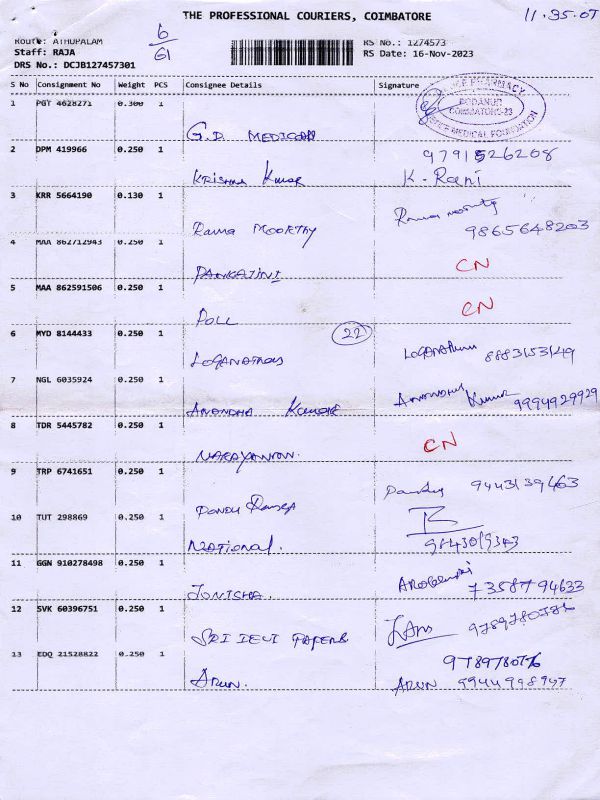 THE PROFESSIONAL COURIERS, COIMBATORE
11.35.07
Route: ATHUPALAM
6
61
RS No.: 1274573
Staff: RAJA
RS Date: 16-Nov-2023
DRS No.: DCJB127457301
S No Consignment No Weight PCS Consignee Details Signature
1 PGT 4628271 0.300 1
PODANUR
COIMBATORE-23
MEDICAL FOUNDATION
2 DPM 419966 0.250 1 9791526208
Krishna Kumar K. Rani
3 KRR 5664190 0.130 1
Rama MOORTHY 9865648203
4 MAA 862712943 0.250 1 CN
5 MAA 862591506 0.250 1 CN
POLL
6 MYD 8144433 0.250 1 22
8883153149
7 NGL 6035924 0.250 1
Anandha Kumar Kumar 9994929929
8 TDR 5445782 0.250 1 CN
9 TRP 6741651 0.250 1
9443139463
10 TUT 298869 0.250 1
National.
11 GGN 910278498 0.250 1
7358794633
12 SVK 60396751 0.250 1
SRI DEVI PAPERS
13 EDQ 21528822 0.250 1
Arun. ARUN 9944998947